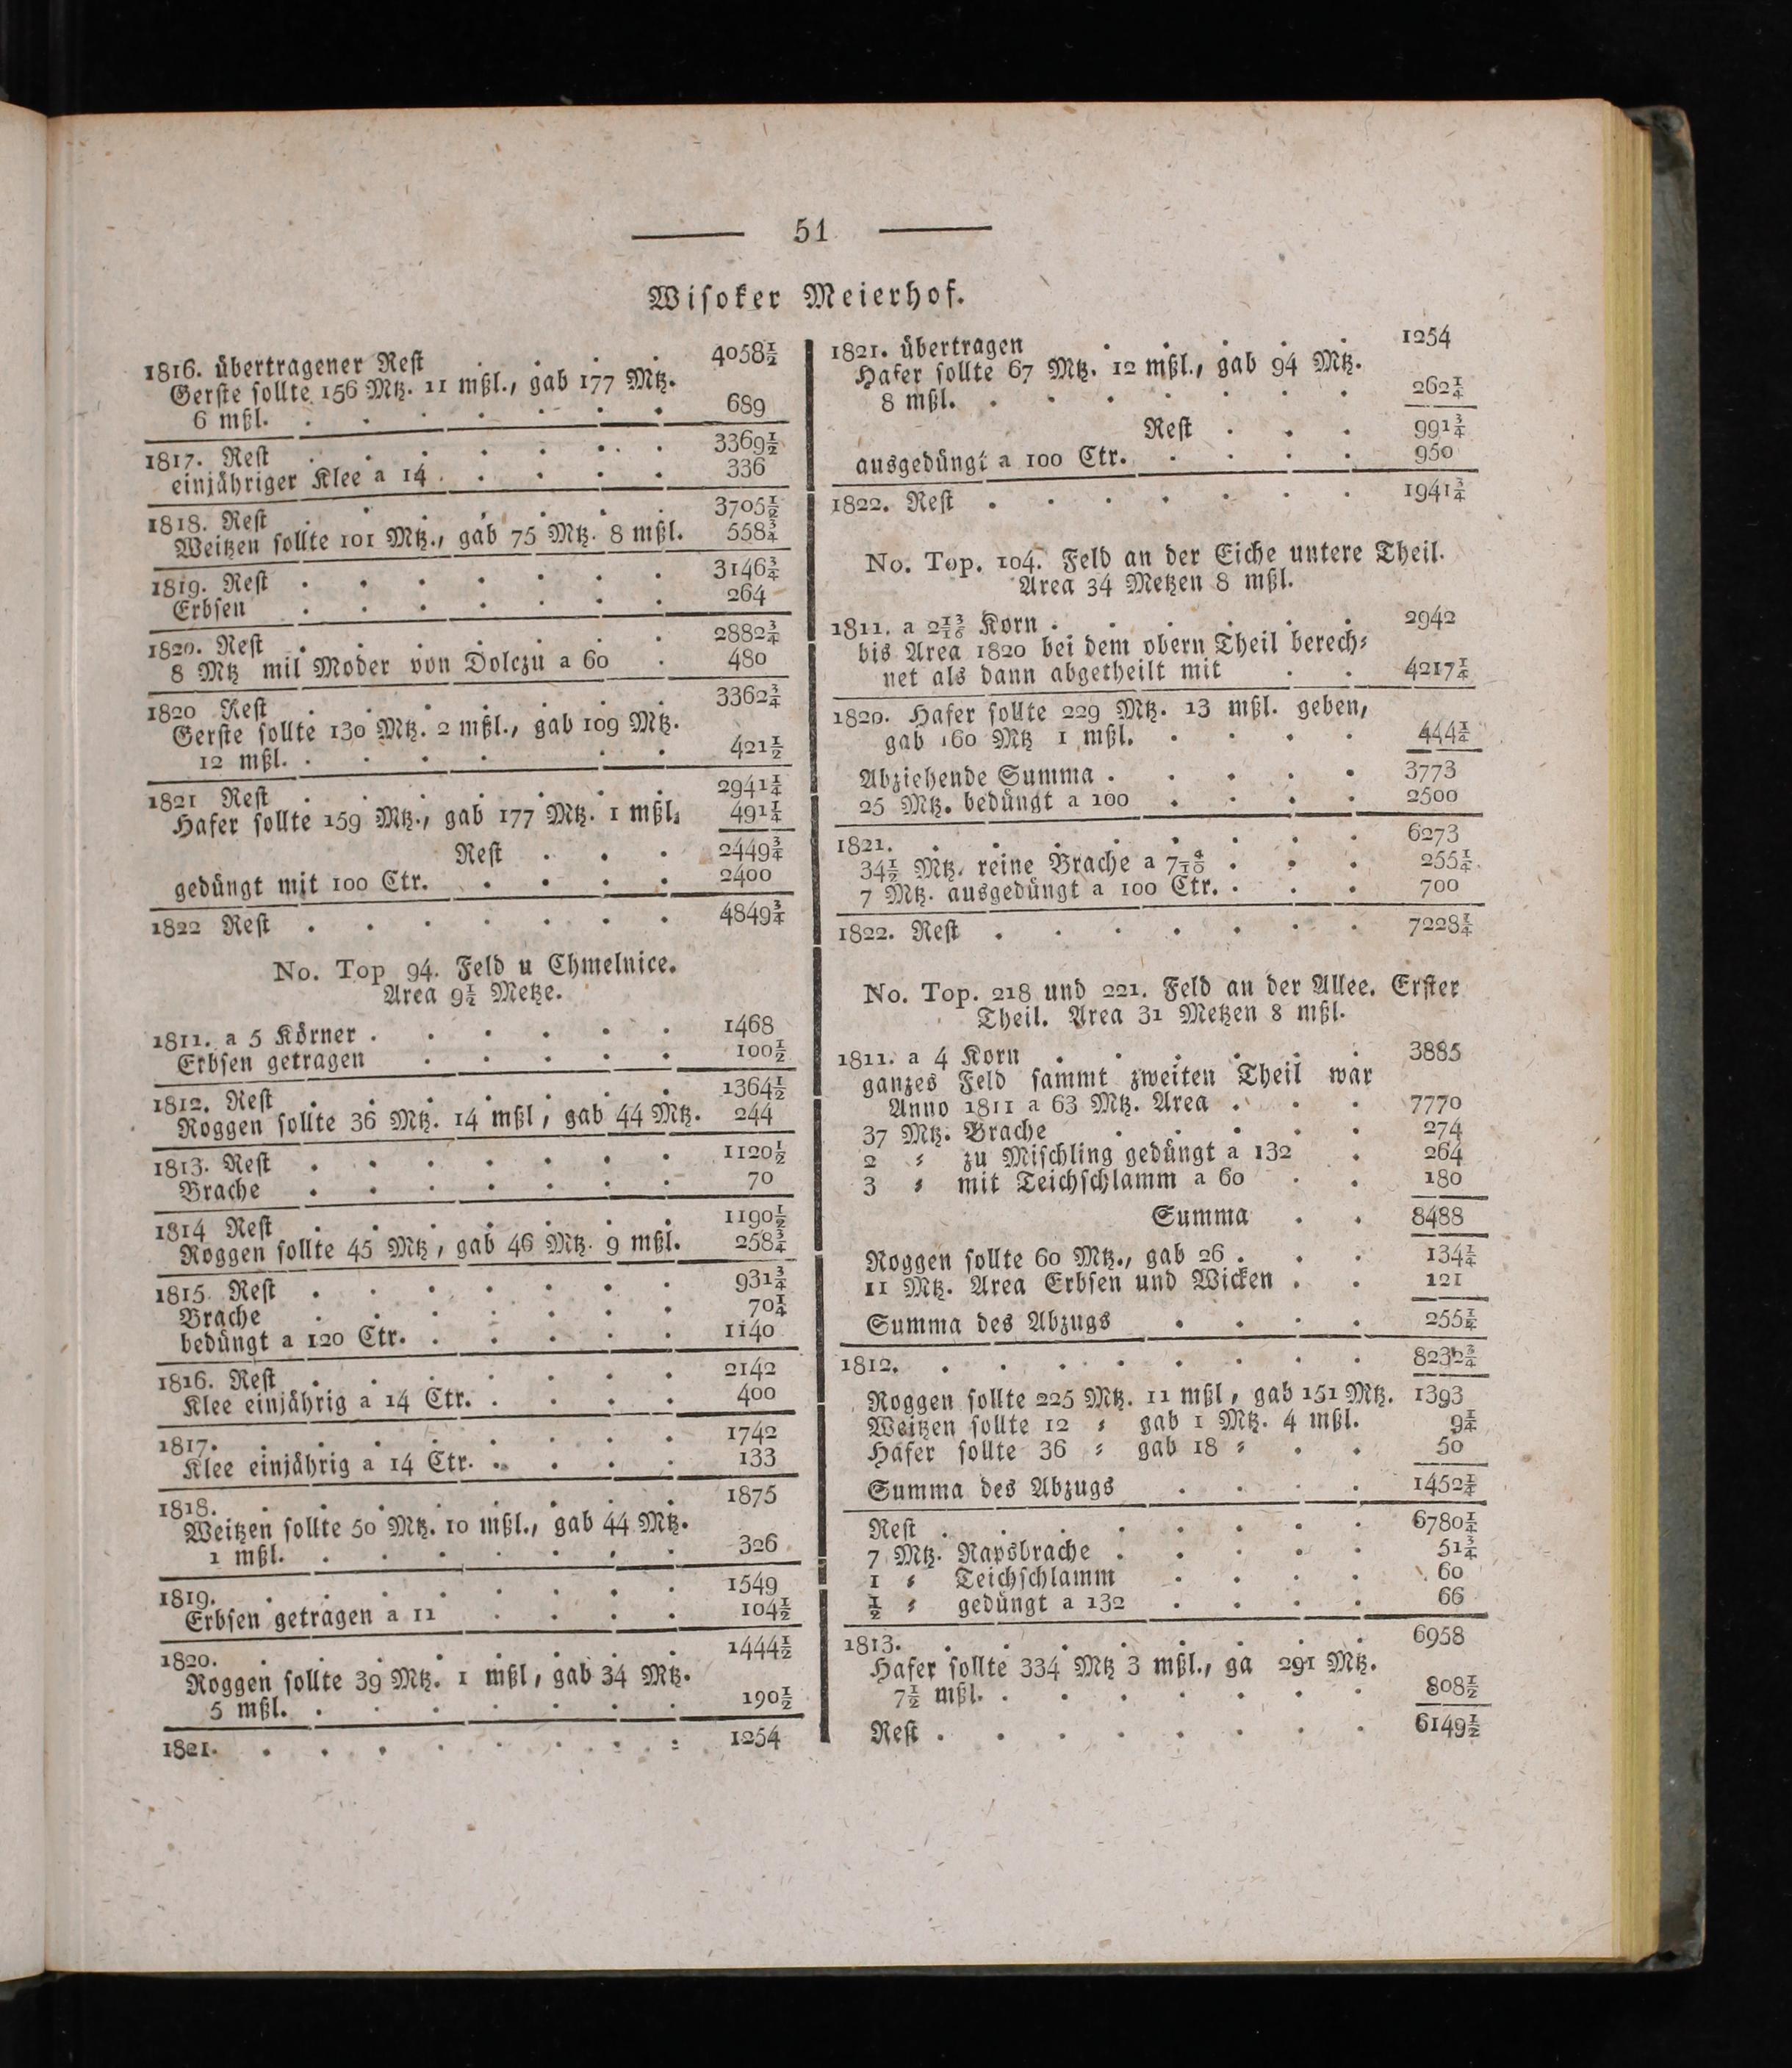 51
Wiſoker Meierhof.
1816. übertragener Reſt . . . . 4058½
Gerſte ſollte 156 Mtz. 11 mßl., gab 177 Mtz.
6 mßl. . . . . . . . 689
1817. Reſt . . . . . . . 3369½
einjähriger Klee a 14 . . . . . 336
1818. Reſt . . . . . . . 3705½
Weitzen ſollte 101 Mtz., gab 75 Mtz. 8 mßl. 558¾
1819. Reſt . . . . . . . 3146¾
Erbſen . . . . . . . 264
1820. Reſt . . . . . . . 2882¾
8 Mtz mil Moder von Dolczu a 60 . 480
1820 Reſt . . . . . . . 3362¾
Gerſte ſollte 130 Mtz. 2 mßl., gab 109 Mtz.
12 mßl. . . . . . . 421½
1821 Reſt . . . . . . . 2941¼
Hafer ſollte 159 Mtz., gab 177 Mtz. 1 mßl. 491¼
Reſt . . . 2449¾
gedüngt mit 100 Ctr. . . . . 2400
1822 Reſt . . . . . . . 4849¾
No. Top 94. Feld u Chmelnice.
Area 9½ Metze.
1811. a 5 Körner . . . . . . 1468
Erbſen getragen . . . . . 100½
1812. Reſt . . . . . . . 1364½
Roggen ſollte 36 Mtz. 14 mßl, gab 44 Mtz. 244
1813. Reſt . . . . . . . 1120½
Brache . . . . . . . 70
1814 Reſt . . . . . . . 1190½
Roggen ſollte 45 Mtz, gab 46 Mtz. 9 mßl. 258¾
1815. Reſt . . . . . . . 931¾
Brache . . . . . . . 70¼
bedüngt a 120 Ctr. . . . . . 1140
1816. Reſt . . . . . . . 2142
Klee einjährig a 14 Ctr. . . . . 400
1817. . . . . . . . . 1742
Klee einjährig a 14 Ctr. . . . . 133
1818. . . . . . . . . 1875
Weitzen ſollte 50 Mtz. 10 mßl., gab 44 Mtz.
1 mßl. . . . . . . . 326
1819. . . . . . . . . 1549
Erbſen getragen a 11 . . . . 104½
1820. . . . . . . . . 1444½
Roggen ſollte 39 Mtz. 1 mßl, gab 34 Mtz.
5 mßl. . . . . . . . 190½
1821. . . . . . . . . 1254
1821. übertragen . . . . . 1254
Hafer ſollte 67 Mtz. 12 mßl., gab 94 Mtz.
8 mßl. . . . . . . . 262¼
Reſt . . . 991¾
ausgedüngt a 100 Ctr. . . . . 950
1822. Reſt . . . . . . . 1941¾
No. Top. 104. Feld an der Eiche untere Theil.
Area 34 Metzen 8 mßl.
1811. a 2 13/16 Korn . . . . . . 2942
bis Area 1820 bei dem obern Theil berech⸗
net als dann abgetheilt mit . . 4217¼
1820. Hafer ſollte 229 Mtz. 13 mßl. geben,
gab 160 Mtz 1 mßl. . . . . 444¼
Abziehende Summa . . . . . 3773
25 Mtz. bedüngt a 100 . . . . 2500
1821. . . . . . . . . 6273
34½ Mtz. reine Brache a 7 4/10 . . . 255¼
7 Mtz. ausgedüngt a 100 Ctr. . . . 700
1822. Reſt . . . . . . . 7228¼
No. Top. 218 und 221. Feld an der Allee. Erſter
Theil. Area 31 Metzen 8 mßl.
1811. a 4 Korn . . . . . . 3885
ganzes Feld ſammt zweiten Theil war
Anno 1811 a 63 Mtz. Area . . . 7770
37 Mtz. Brache . . . . . 274
2 ⸗ zu Miſchling gedüngt a 132 . 264
3 ⸗ mit Teichſchlamm a 60 . . 180
Summa . . 8488
Roggen ſollte 60 Mtz., gab 26 . . . 134¼
11 Mtz. Area Erbſen und Wicken . . 121
Summa des Abzugs . . . . 255¼
1812. . . . . . . . . 8232¾
Roggen ſollte 225 Mtz. 11 mßl, gab 151 Mtz. 1393
Weitzen ſollte 12 ⸗ gab 1 Mtz. 4 mßl. 9¼
Hafer ſollte 36 ⸗ gab 18 ⸗ . . 50
Summa des Abzugs . . . . 1452¼
Reſt . . . . . . . . 6780¼
7 Mtz. Rapsbrache . . . . . 51¾
1 ⸗ Teichſchlamm . . . . 60
½ ⸗ gedüngt a 132 . . . . 66
1813. . . . . . . . . 6958
Hafer ſollte 334 Mtz 3 mßl., ga 291 Mtz.
7½ mßl. . . . . . . . 808½
Reſt . . . . . . . . 6149½